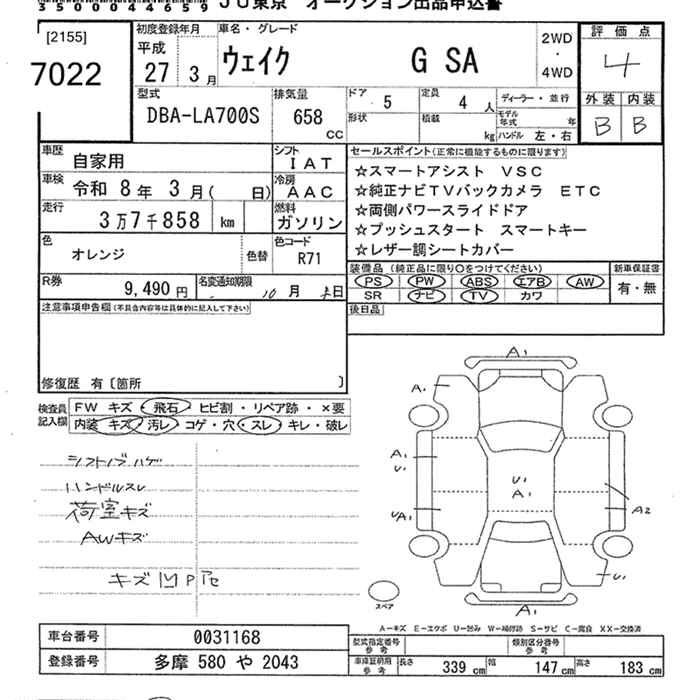 35000446592
JU東京 オークション出品申込書
[2155]
7022
初度登録年月
平成
27 3月
車名・グレード
ウェイク G SA
2WD
・
4WD
評価点
4
外装 内装
B B
型式
DBA-LA700S
排気量
658
CC
ドア 5
定員 4 人
ディーラー・並行
形状
積載
kg
モデル年式 年
ハンドル 左・右
車歴
自家用
シフト
I AT
車検
令和 8年 3月( 日)
冷房
AAC
走行
3万7千858 km
燃料
ガソリン
色
オレンジ
色替
色コード
R71
R券
9,490 円
名変通知期限
10 月 日
セールスポイント(正常に機能するものに限ります)
☆スマートアシスト VSC
☆純正ナビTVバックカメラ ETC
☆両側パワースライドドア
☆プッシュスタート スマートキー
☆レザー調シートカバー
装備品(純正品に限り○をつけてください)
新車保証書
PS PW ABS エアB AW
SR ナビ TV カワ
有・無
後日品
注意事項申告欄(不具合内容等は具体的に記入して下さい)
修復歴 有〔箇所 〕
検査員
記入欄
FW キズ・飛石・ヒビ割・リペア跡・×要
内装 キズ・汚レ・コゲ・穴・スレ・キレ・破レ
シフトノブハゲ
ハンドルスレ
荷室キズ
AWキズ
キズ凹P他
A1
A.
A1
U1
U1
A1
UA1
A2
U1
A1
スペア
A-キズ E-エクボ U-凹み W-補修跡 S-サビ C-腐食 XX-交換済
車台番号 0031168
登録番号 多摩 580 や 2043
型式指定番号
参考
類別区分番号
参考
車庫証明用
参考
長さ 339 cm 幅 147 cm 高さ 183 cm